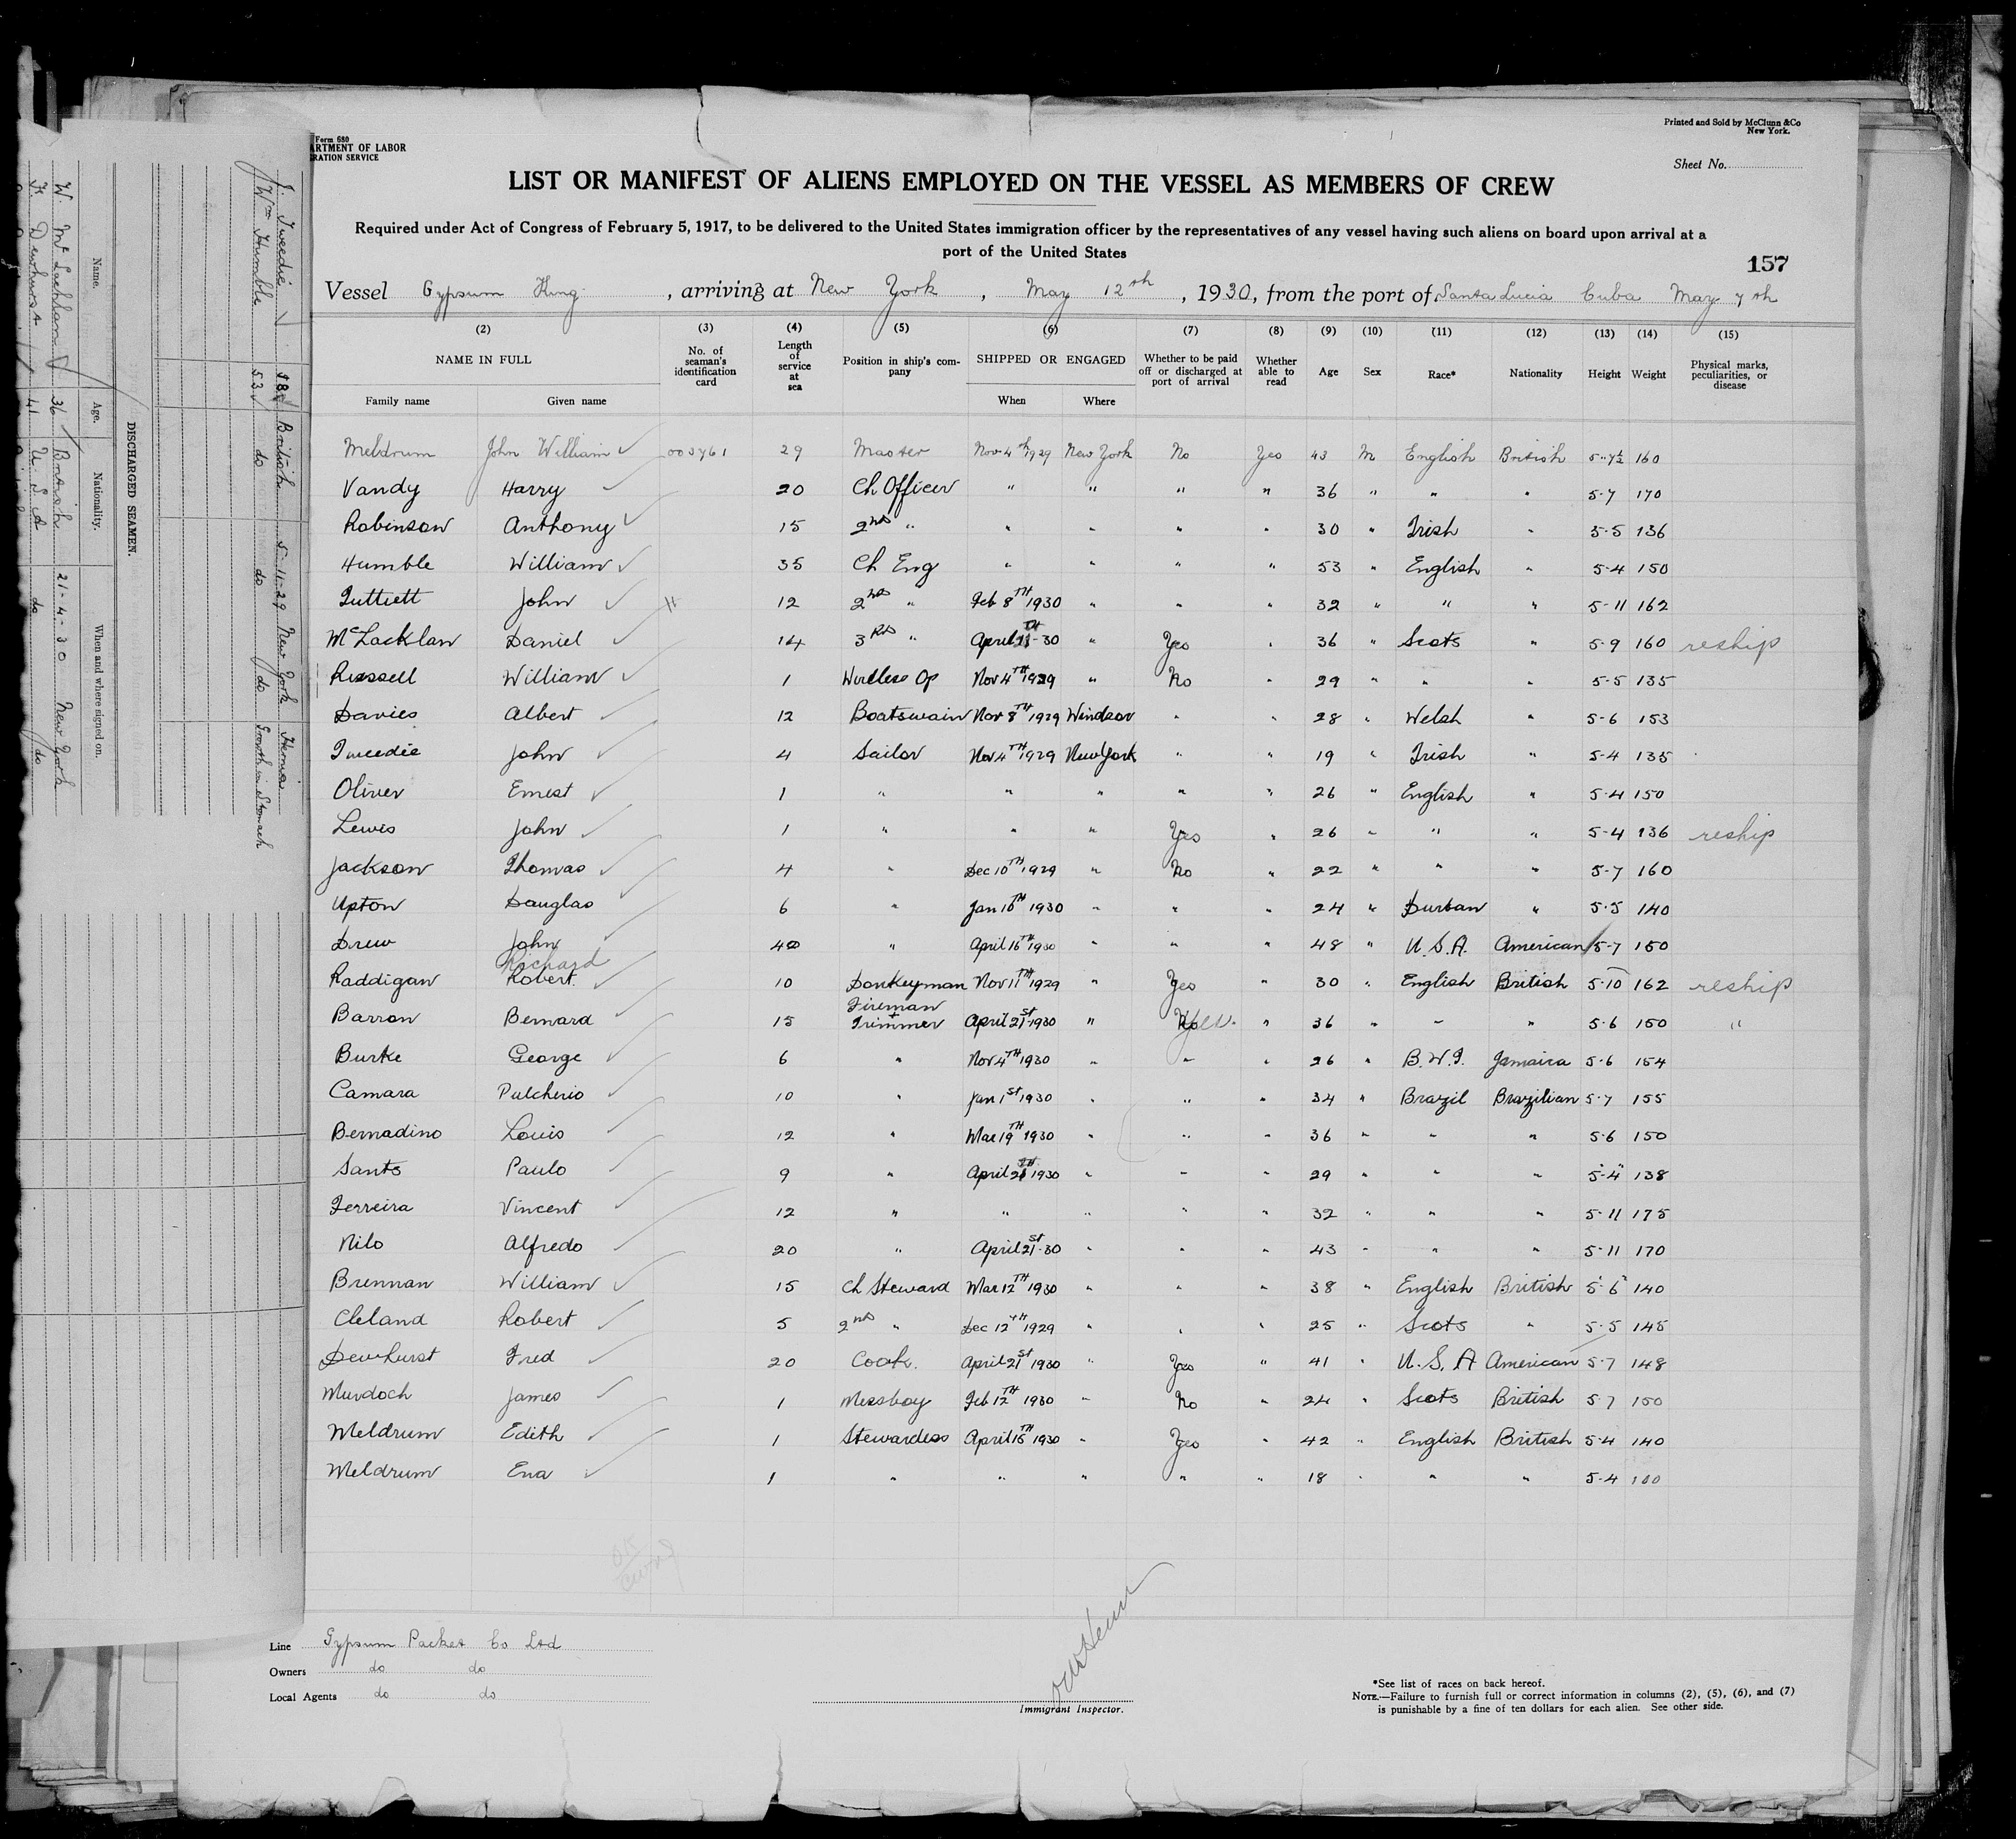 Form 680
ARTMENT OF LABOR
RATION SERVICE
Printed and Sold by McClunn & Co
New York.
Sheet No.
LIST OR MANIFEST OF ALIENS EMPLOYED ON THE VESSEL AS MEMBERS OF CREW
Required under Act of Congress of February 5, 1917, to be delivered to the United States immigration officer by the representatives of any vessel having such aliens on board upon arrival at a
port of the United States
157
Vessel Gypsum King, arriving at New York, May 12th, 1930, from the port of Santa Lucia Cuba May 7th
(2) (3) (4) (5) (6) (7) (8) (9) (10) (11) (12) (13) (14) (15)
NAME IN FULL No. of seaman's identification card Length of service at sea Position in ship's company SHIPPED OR ENGAGED Whether to be paid off or discharged at port of arrival Whether able to read Age Sex Race* Nationality Height Weight Physical marks, peculiarities, or disease
Family name Given name When Where
Meldrum John William 003761 29 Master Nov 4th 1929 New York No Yes 43 M English British 5-7½ 160
Vandy Harry 20 Ch Officer " " " " 36 " " " 5-7 170
Robinson Anthony 15 2nd " " " " " 30 " Irish " 5-5 136
Humble William 35 Ch Eng " " " " 53 " English " 5-4 150
Tuttiett John 12 2nd " Feb 8TH 1930 " " " 32 " " " 5-11 162
McLacklan Daniel 14 3RD " April TH-30 " Yes " 36 " Scots " 5-9 160 reship
Russell William 1 Wireless Op Nov 4TH 1929 " No " 29 " " " 5-5 135
Davies Albert 12 Boatswain Nov 8TH 1929 Windsor " " 28 " Welsh " 5-6 153
Tweedie John 4 Sailor Nov 4TH 1929 New York " " 19 " Irish " 5-4 135
Oliver Ernest 1 " " " " " 26 " English " 5-4 150
Lewis John 1 " " " Yes " 26 " " " 5-4 136 reship
Jackson Thomas 4 " Dec 10TH 1929 " No " 22 " " " 5-7 160
Upton Douglas 6 " Jan 10TH 1930 " " " 24 " Durban " 5-5 140
Drew John 40 " April 16TH 1930 " " " 48 " U.S.A. American 5-7 150
Raddigan Richard Robert 10 Donkeyman Nov 11TH 1929 " Yes " 30 " English British 5-10 162 reship
Barron Bernard 15 Fireman + Trimmer April 21st 1930 " No Yes. " 36 " " " 5-6 150 "
Burke George 6 " Nov 4TH 1930 " " " 26 " B.W.I. Jamaica 5-6 154
Camara Pulcherio 10 " Jan 1st 1930 " " " 34 " Brazil Brazilian 5-7 155
Bernadino Louis 12 " Mar 19TH 1930 " " " 36 " " " 5-6 150
Santo Paulo 9 " April 1930 " " " 29 " " " 5-4 138
Ferreira Vincent 12 " " " " " 32 " " " 5-11 175
Nilo Alfredo 20 " April 21st-30 " " " 43 " " " 5-11 170
Brennan William 15 Ch Steward Mar 12TH 1930 " " " 38 " English British 5-6 140
Cleland Robert 5 2nd " Dec 12TH 1929 " " " 25 " Scots " 5-5 145
Dewhurst Fred 20 Cook. April 21st 1930 " Yes " 41 " U.S.A American 5-7 148
Murdoch James 1 Messboy Feb 12TH 1930 " No " 24 " Scots British 5-7 150
Meldrum Edith 1 Stewardess April 15TH 1930 " Yes " 42 " English British 5-4 140
Meldrum Ena 1 " " " " " 18 " " " 5-4 100
Line Gypsum Packet Co Ltd
Owners do do
Local Agents do do
Immigrant Inspector.
*See list of races on back hereof.
NOTE.—Failure to furnish full or correct information in columns (2), (5), (6), and (7)
is punishable by a fine of ten dollars for each alien. See other side.
DISCHARGED SEAMEN.
Name. Age. Nationality. When and where signed on.
W McLachlan 36 British 21-4-30 New York
F. Dewhurst 41 U.S.A do do
J. Tweedie British 5-11-29 New York Hernia
Wm Humble 53 do do do Growth in Stomach